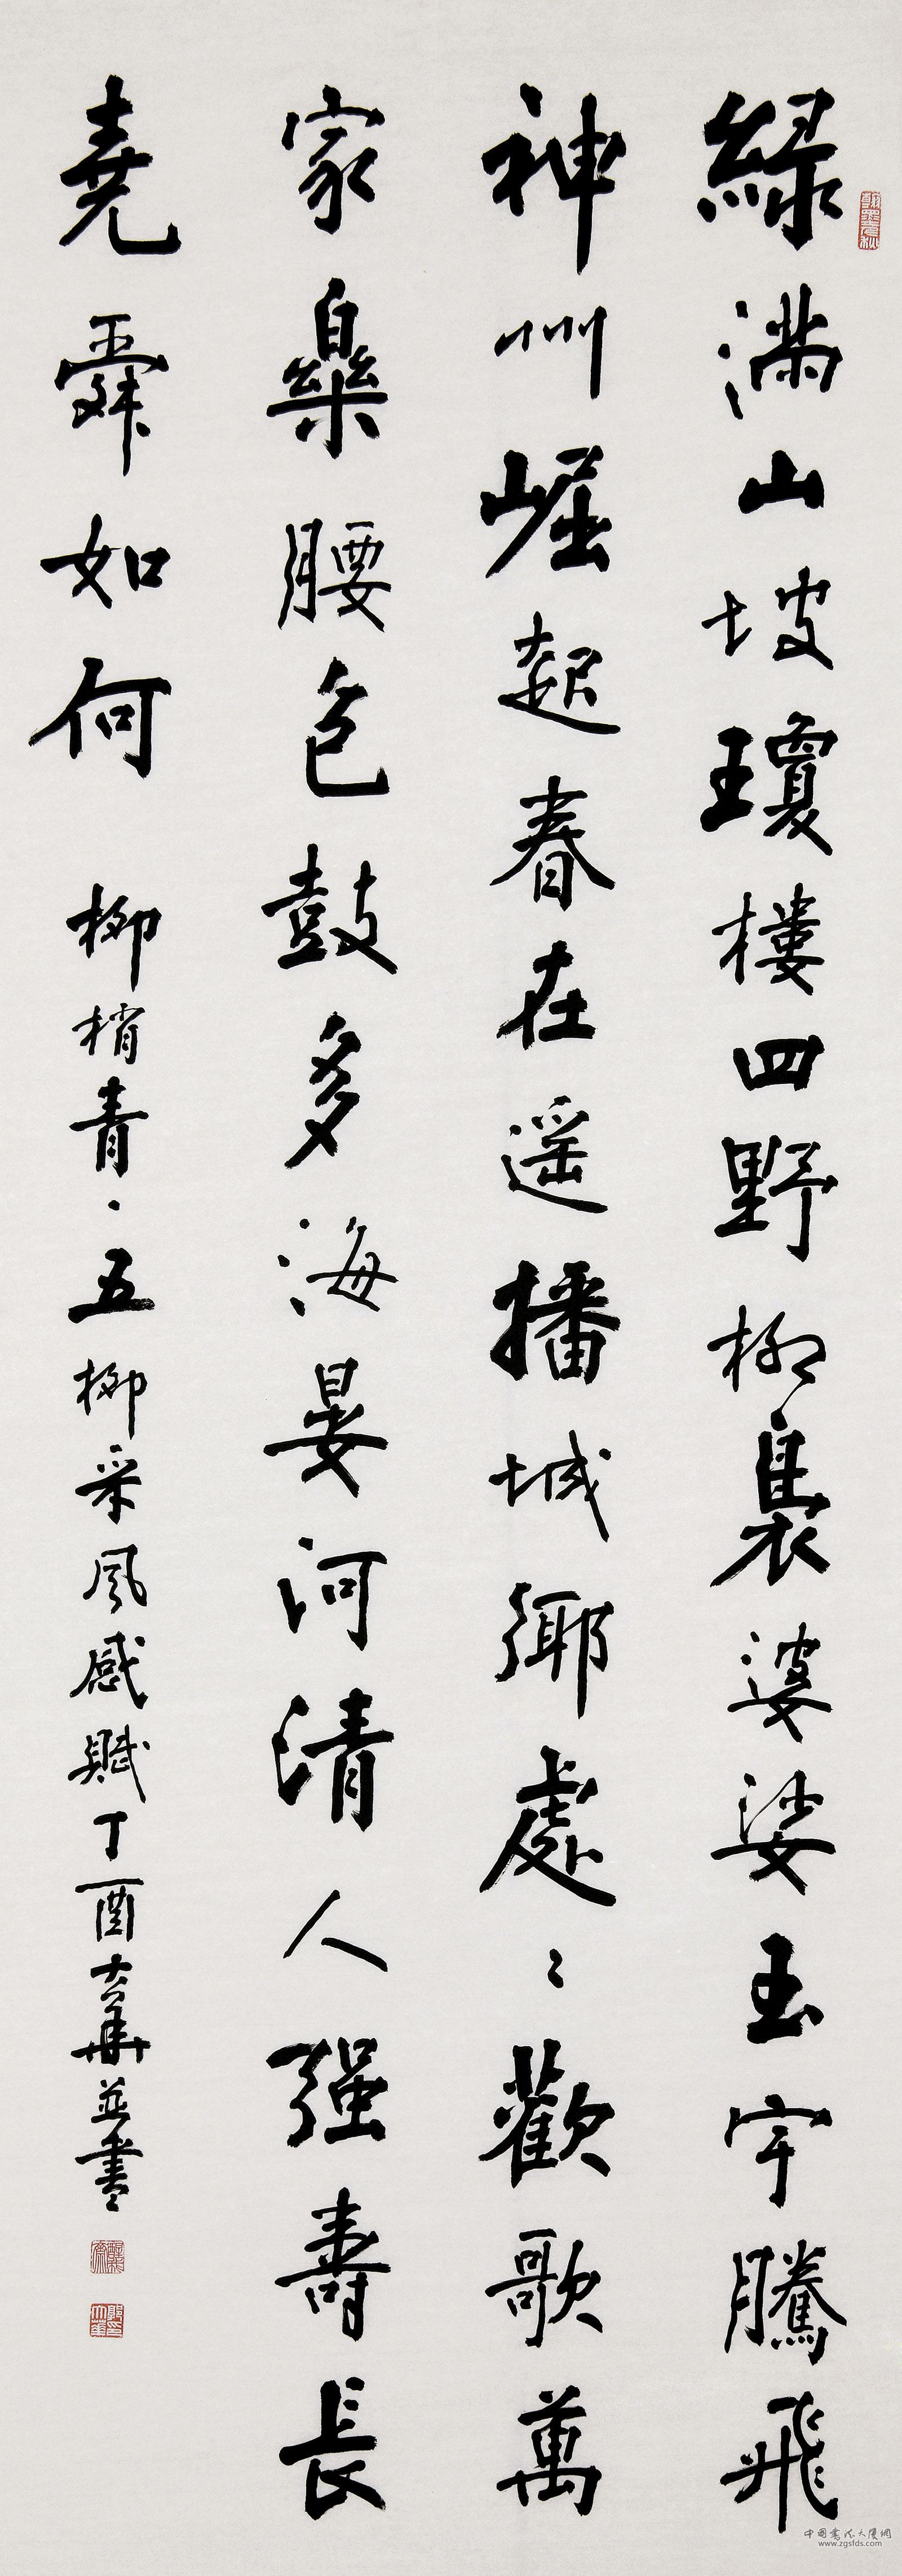 綠滿山坡瓊樓四野柳裊婆娑玉宇騰飛
神州崛起春在遥播城鄉處々歡歌萬
家樂腰包鼓多海晏河清人强壽長
堯舜如何
柳梢青·五柳采風感賦丁酉大華並書
中国書法大厦網
www.zgsfds.com